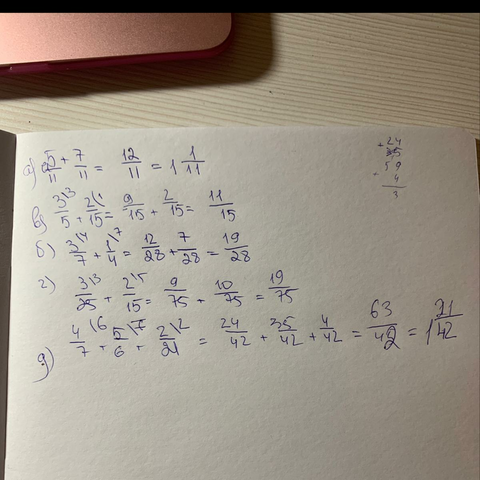 а) 5/11 + 7/11 = 12/11 = 1 1/11
в) 3\3/5 + 2\1/15 = 9/15 + 2/15 = 11/15
б) 3\4/7 + 1\7/4 = 12/28 + 7/28 = 19/28
г) 3\3/25 + 2\5/15 = 9/75 + 10/75 = 19/75
д) 4\6/7 + 5\7/6 + 2\2/21 = 24/42 + 35/42 + 4/42 = 63/42 = 1 21/42
+ 24
35
59
4
3